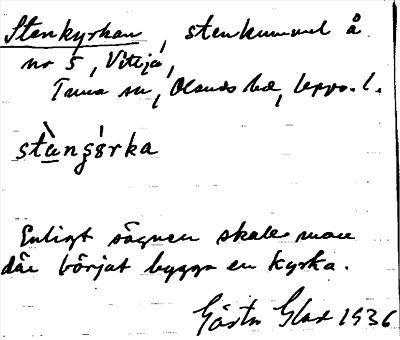 Stenkyrkan, stenkummel å
nr 5, Vittja,
Tuna sn, Olands hd, Upps. l.
stàngørka
Enligt sägnen skall man
där börjat bygga en kyrka.
Gösta Glad 1936